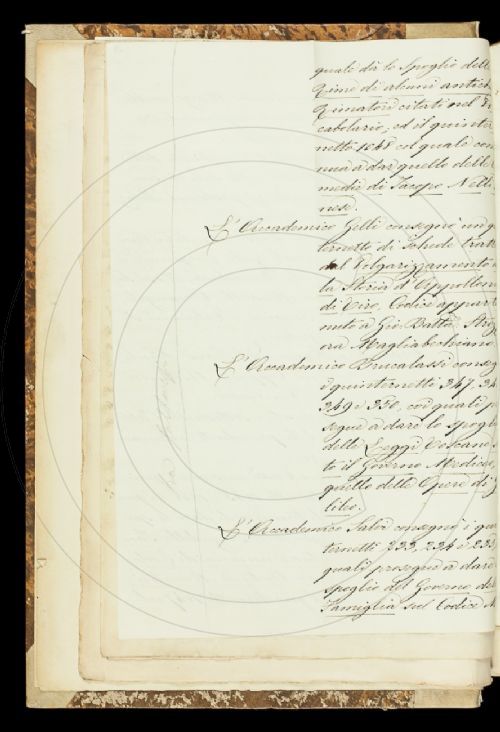 quale dà lo Spoglio dell
Rime di alcuni antich
Rimatori citati nel V
cabolario; ed il quinter
netto 1048 col quale con
nua a dar quello delle
medie di Jacopo Nelli
nese.
L'Accademico Gelli consegnò un q
ternetto di Schede tratt
dal Volgarizzamento
la Storia d'Appollon
di Tiro, Codice appart
nuto a Gio: Batta: Stroz
ora Magliabechiano.
L'Accademico Brucalassi conseg
i quinternetti 347, 34
349 e 350, coi quali p
segue a dare lo spogli
delle Leggi Toscane s
to il Governo Mediceo,
quello delle Opere di G
lileo.
L'Accademico Salvi consegnò i qui
ternetti 233, 234 e 235
quali prosegue a dare
spoglio del Governo del
Famiglia sul Codice